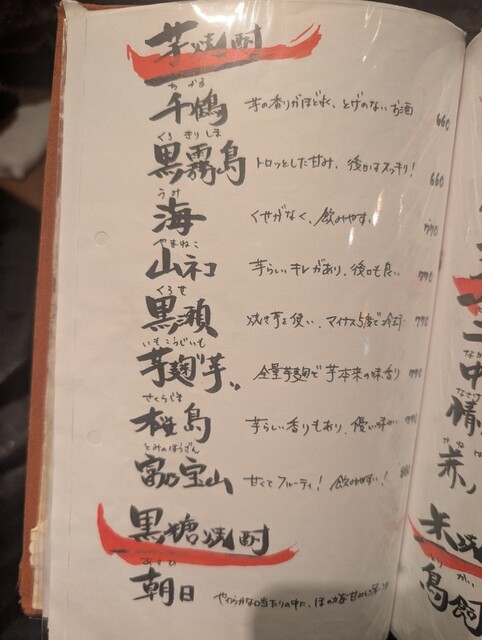 芋焼酎
ちづる
千鶴 芋の香りがほどよく、とげのないお酒 660
くろきりしま
黒霧島 トロッとした甘み、後かはスッキリ! 660
うみ
海 くせがなく、飲みやす。 770
やまねこ
山ネコ 芋らしいキレがあり、後口も良い 770
くろせ
黒瀬 焼き芋を使い、マイナス5度で冷却 770
いもこうじいも
芋麹芋 全量芋麹で芋本来の味香り 770
さくらじま
桜島 芋らしい香りもあり、優い味わい
とみのほうざん
富乃宝山 甘くてフルーティ! 飲みやすい! 880
黒糖焼酎
あさひ
朝日 やわらかな口当たりの中に、ほのかな甘みと
中
情
赤
米焼
とりかい
鳥飼